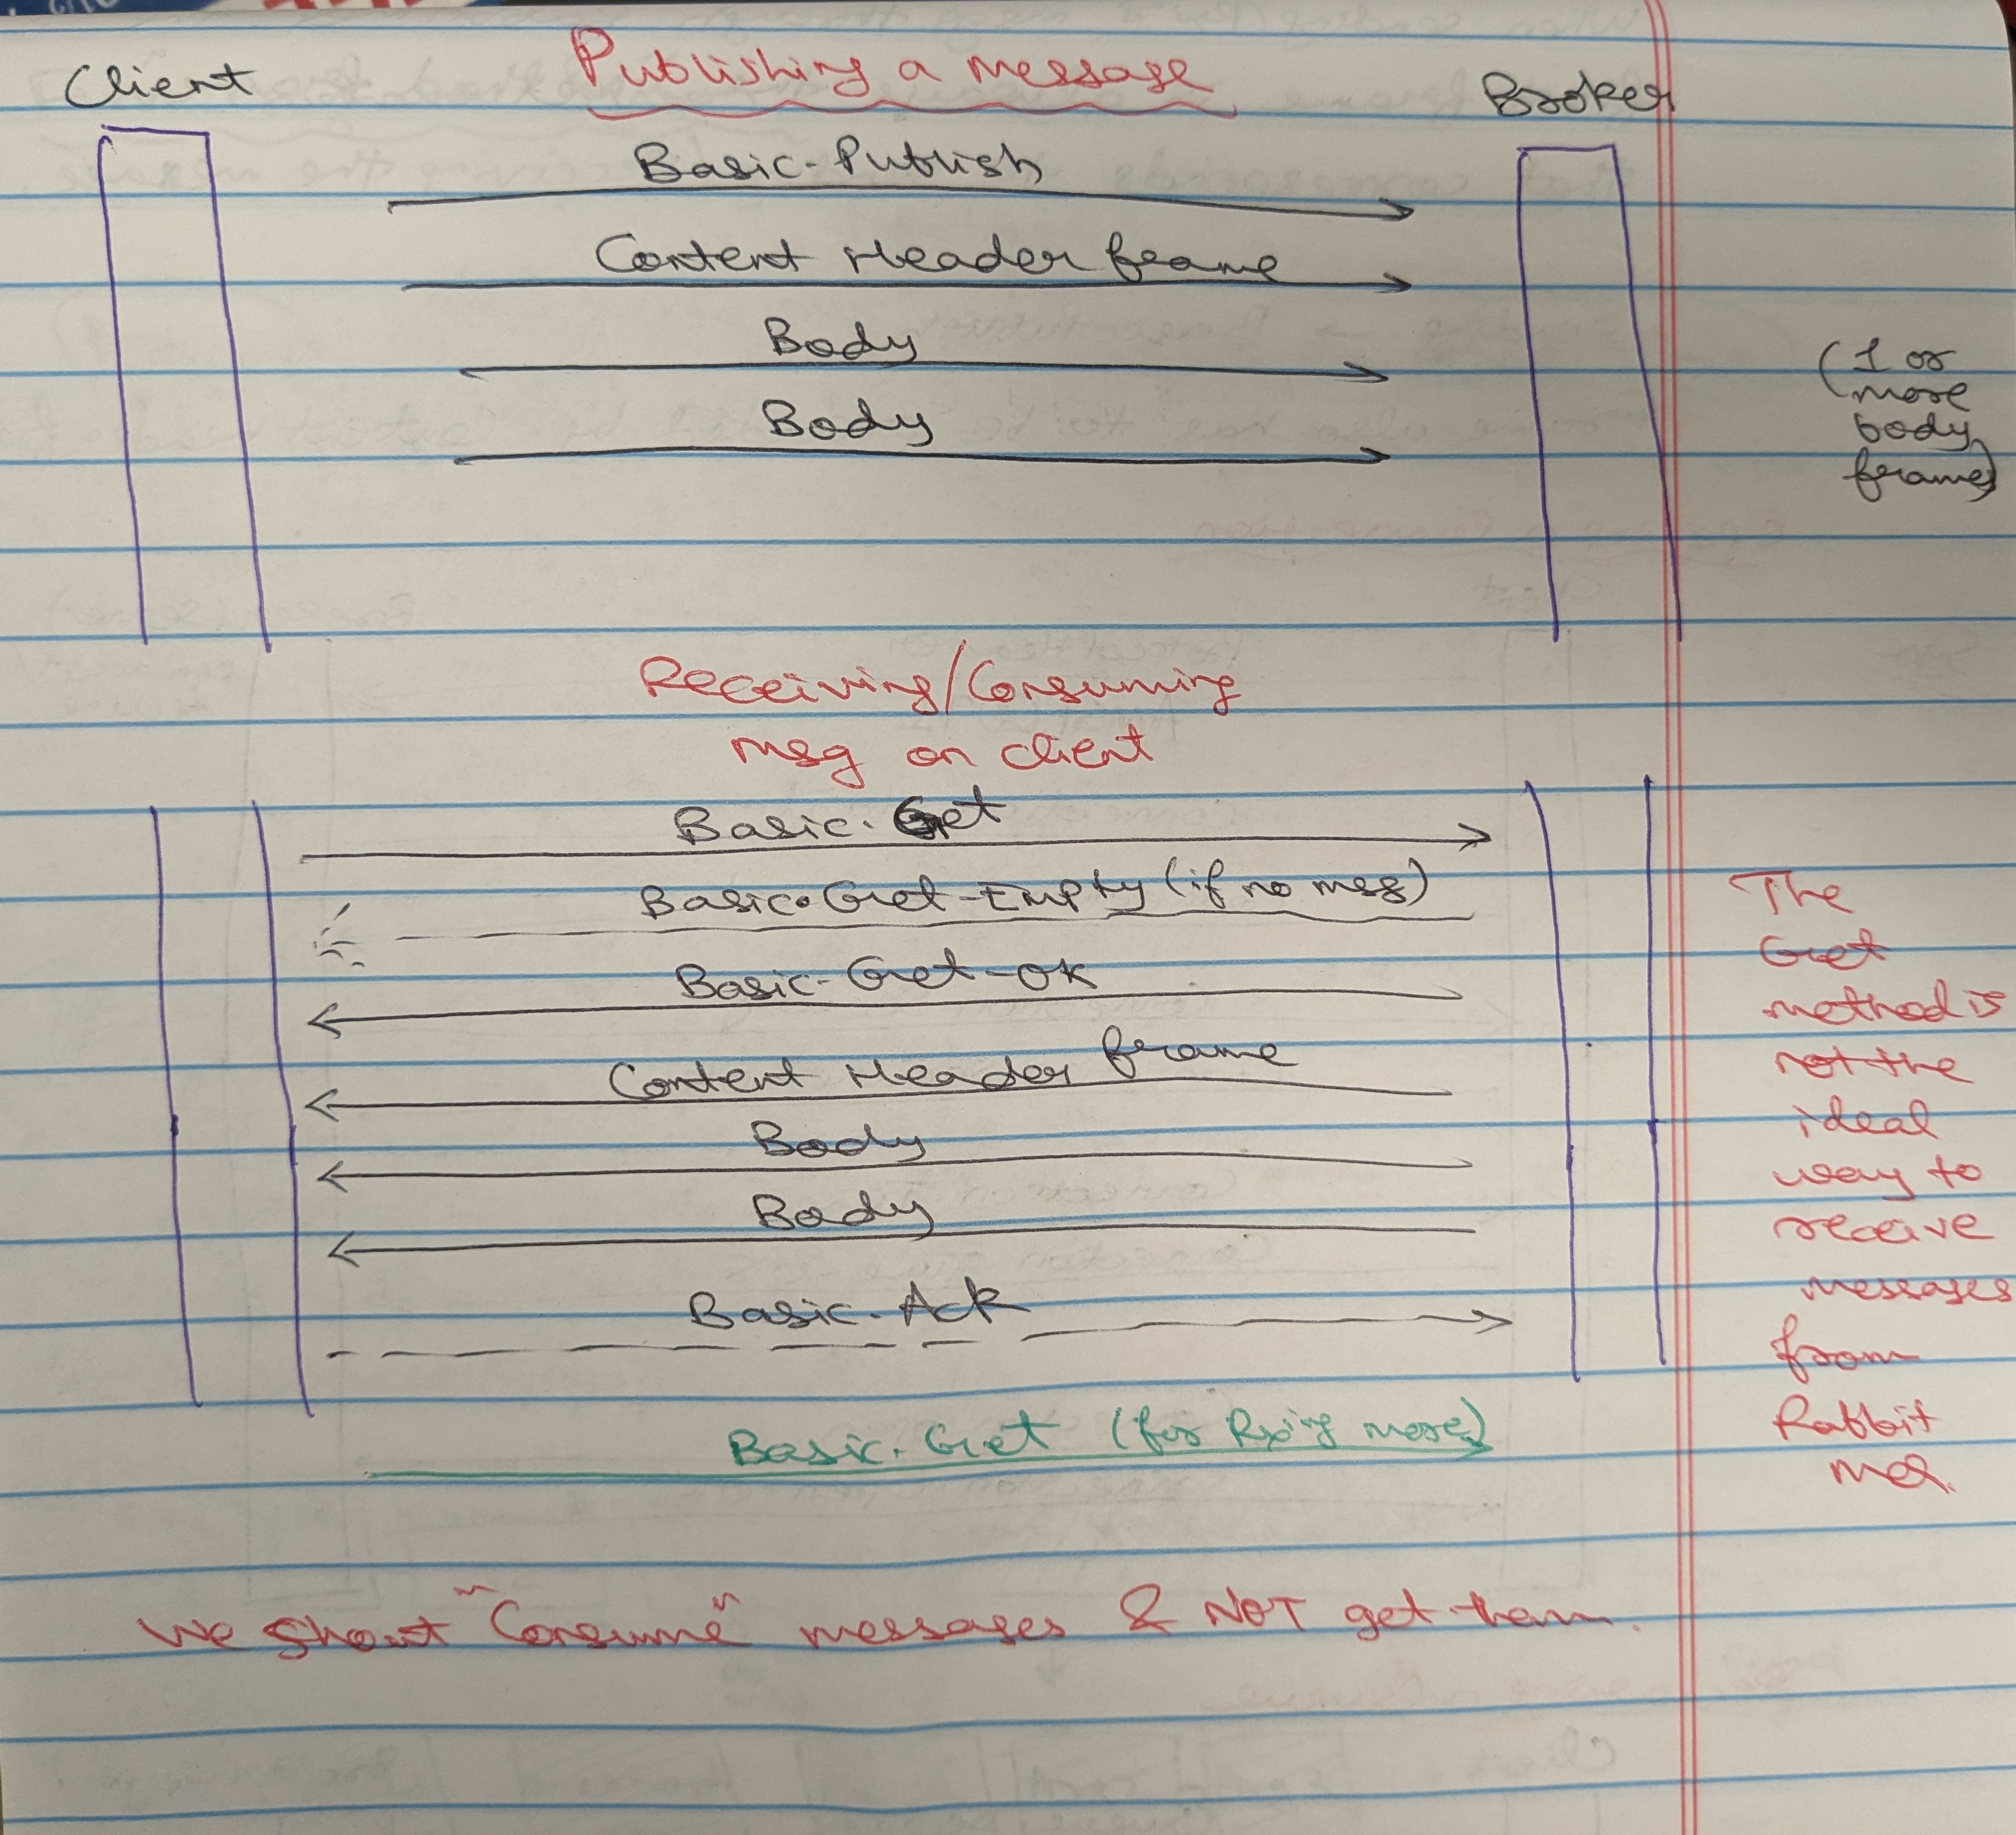 Publishing a message
Client
Broker
Basic.Publish
Content Header frame
Body
Body
(1 or
more
body
frames)
Receiving/Consuming
msg on client
Basic.Get
Basic.Get-Empty (if no msg)
Basic.Get-OK
Content Header frame
Body
Body
Basic.Ack
Basic.Get (for Rx'ing more)
The
Get
method is
not the
ideal
way to
receive
messages
from
Rabbit
MQ.
We "Consume" messages & NOT get them.